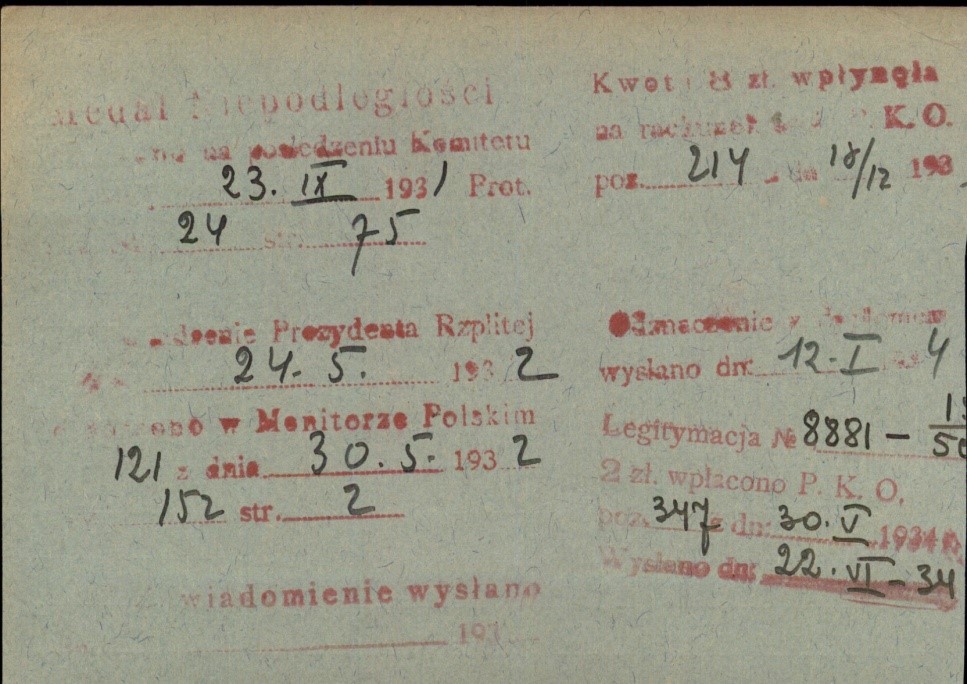 Medal Niepodległości
na posiedzeniu Komitetu
23. IX 1931 Prot.
24 str. 75
Prezydenta Rzplitej
24. 5. 1932
w Monitorze Polskim
121 z dnia 30. 5. 1932
152 str. 2
wiadomienie wysłano
193
Kwota 8 zł. wpłynęła
na rachunek P. K. O.
poz. 214 dn 18/12 193
Odznaczenie z
wysłano dn: 12. I 4
Legitymacja № 8881 –
2 zł. wpłacono P. K. O.
poz. 347 z dn: 30. V 1934 r.
Wysłano dn: 22. VI – 34